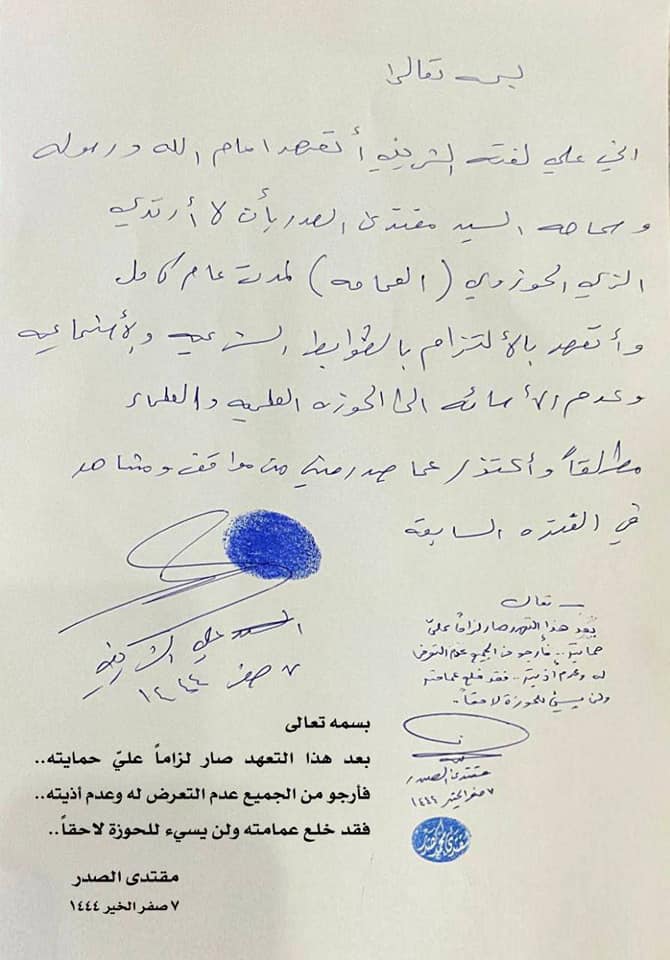 بسمه تعالى
اني علي لفته الشريفي أتعهد امام الله ورسوله
وسماحه السيد مقتدى الصدر بأن لا أرتدي
الزي الحوزوي (العمامه) لمدت عام كامل
وأتعهد بالألتزام بالظوابط الشرعيه والأجتماعيه
وعدم الأسائه الى الحوزه العلميه والعلماء
مطلقاً وأعتذر عما صدر مني من مواقف ومشاهد
في الفتره السابقه
علي الشريفي
٧ صفر ١٤٤٤
تعالى
بعد هذا التعهد صار لزاماً عليّ
حمايته.. فأرجو من الجميع عدم التعرض
له وعدم أذيته.. فقد خلع عمامته
ولن يسيء للحوزة لاحقاً..
مقتدى الصدر
٧ صفر الخير ١٤٤٤
بسمه تعالى
بعد هذا التعهد صار لزاماً عليّ حمايته..
فأرجو من الجميع عدم التعرض له وعدم أذيته..
فقد خلع عمامته ولن يسيء للحوزة لاحقاً..
مقتدى الصدر
٧ صفر الخير ١٤٤٤